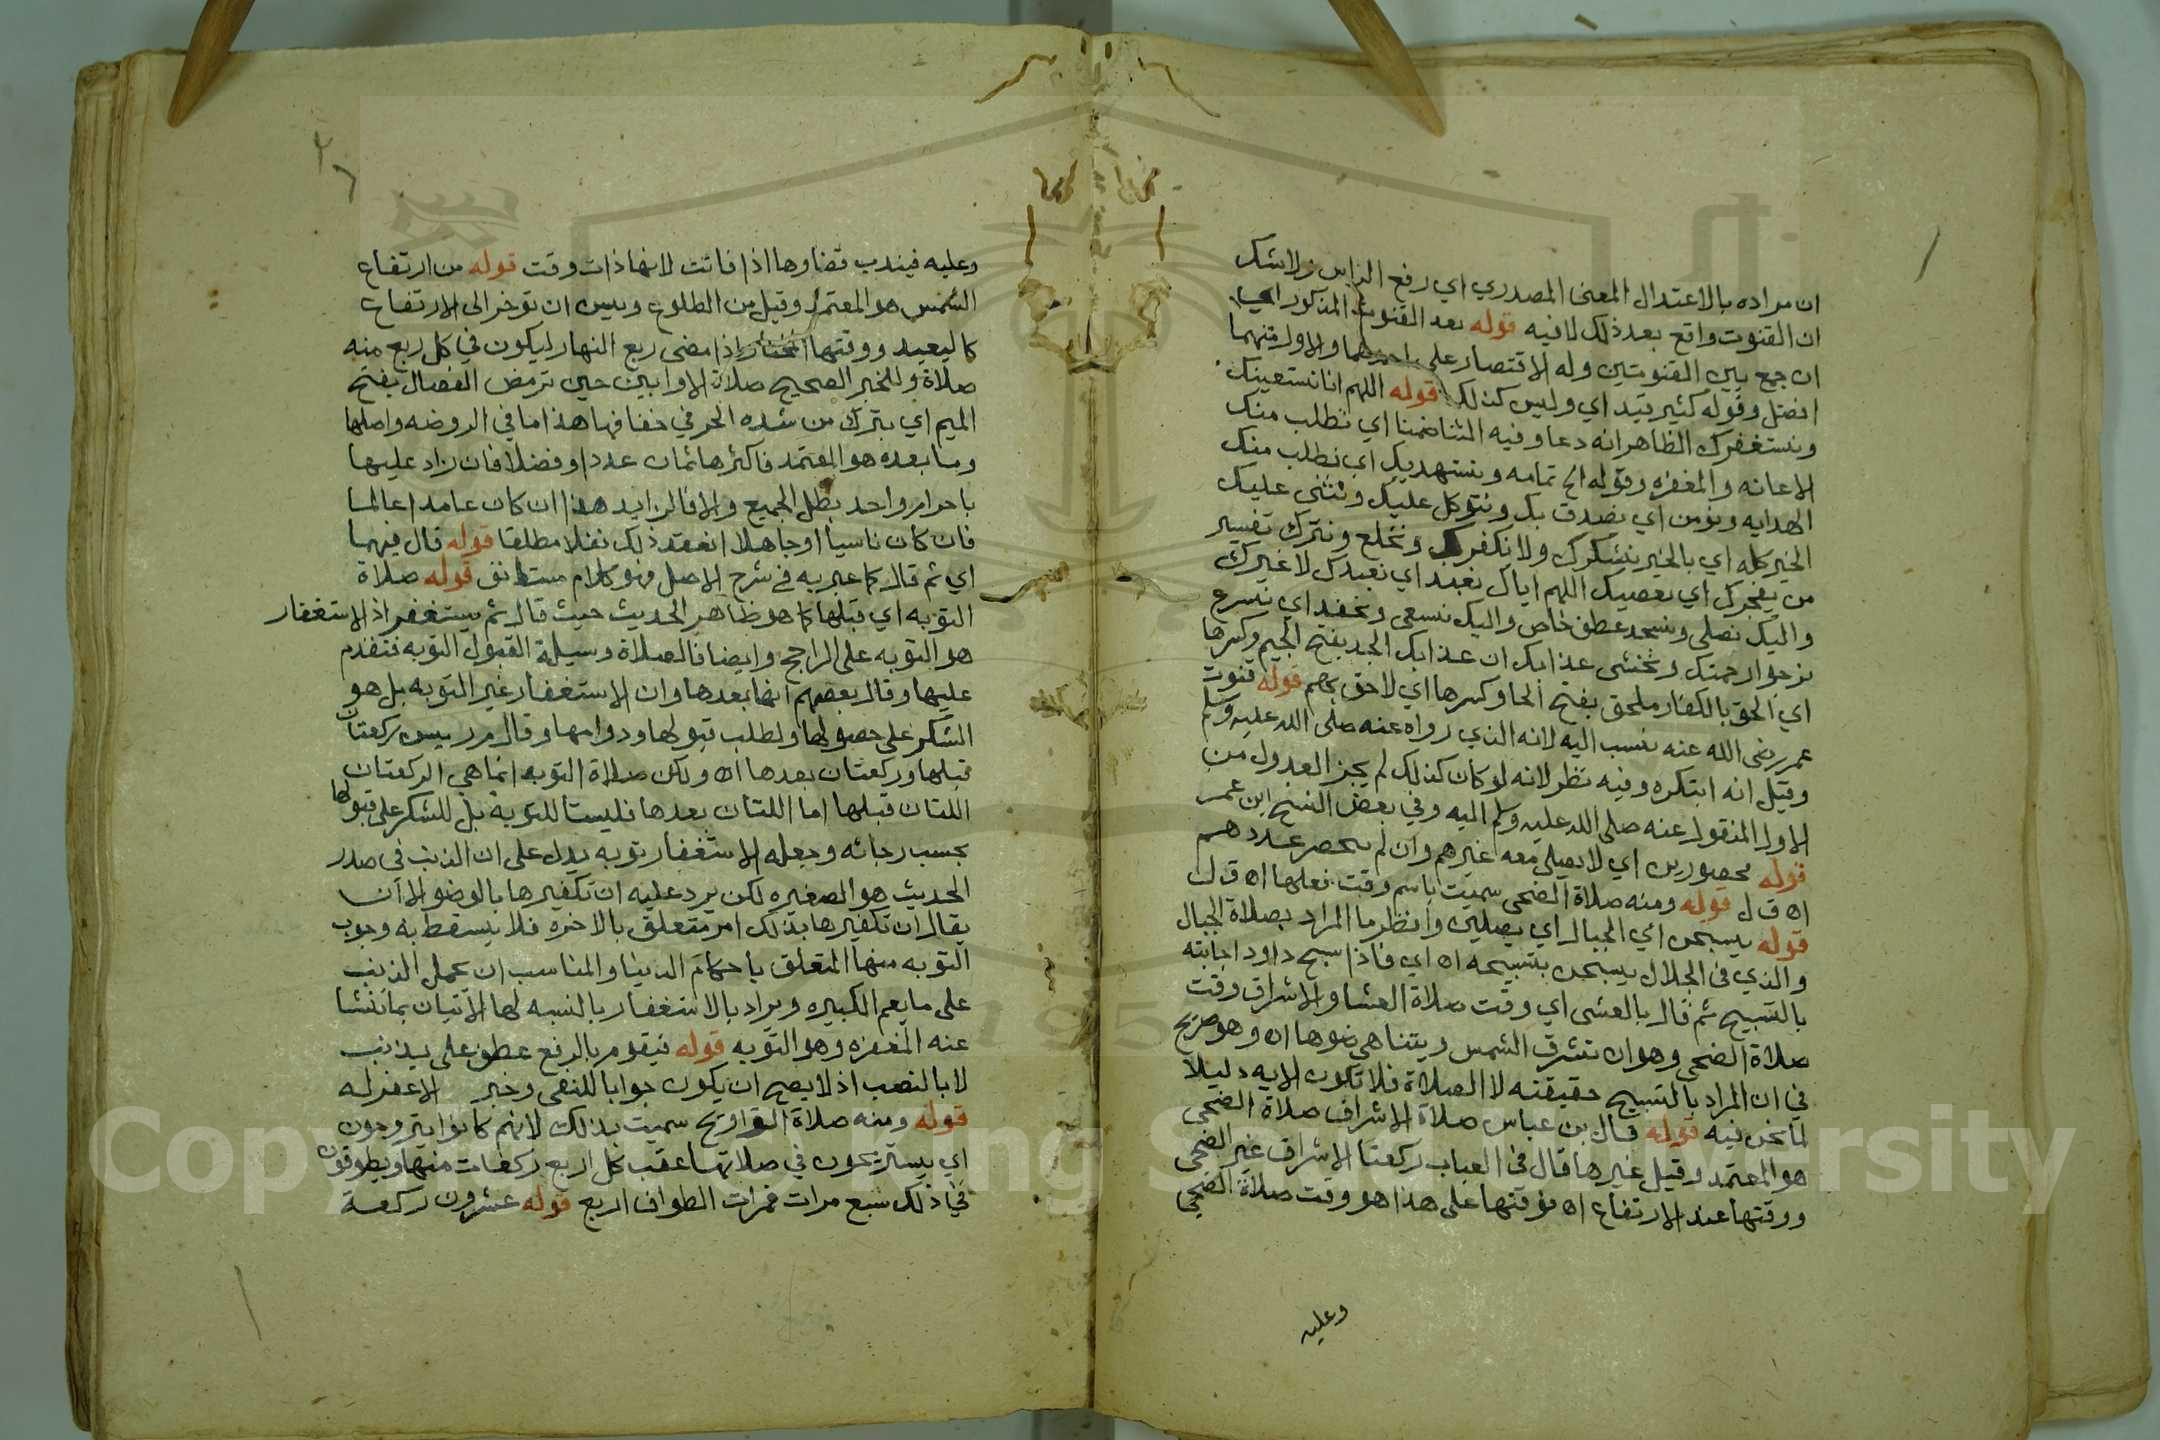 ان مراده بالاعتدال المعنى المصدري اي رفع الراس ولا شك
ان القنوت واقع بعد ذلك لا فيه قوله بعد القنوت المذكور اي
ان جمع بين القنوتين وله الاقتصار على احدهما والاول منهما
افضل وقوله كثير بيد اي وليس كذلك قوله اللهم انا نستعينك
ونستغفرك الظاهر انه دعا وفيه الثنا ضمنا اي نطلب منك
الاعانه والمغفره وقوله الخ تمامه ونستهديك اي نطلب منك
الهدايه ونؤمن اي نصدق بك ونتوكل عليك ونثني عليك
الخير كله اي بالخير نشكرك ولا نكفرك ونخلع ونترك تفسير
من يفجرك اي يعصيك اللهم اياك نعبد اي نعبدك لا غيرك
واليك نصلي ونسجد عطف خاص واليك نسعى ونحفد اي نسرع
نرجوا رحمتك ونخشى عذابك ان عذابك الجد بفتح الجيم وكسرها
اي الحق بالكفار ملحق بفتح الحا وكسرها اي لاحق بهم قوله قنوت
عمر رضى الله عنه نسب اليه لانه الذي رواه عنه صلى الله عليه وسلم
وقيل انه ابتكره وفيه نظر لانه لو كان كذلك لم يجز العدول من
الاول المنقول عنه صلى الله عليه وسلم اليه وفي بعض النسخ ابن عمر
قوله محصورين اي لا يصلي معه غيرهم وان لم يحصر عددهم
اه ق ل قوله ومنه صلاة الضحى سميت باسم وقت فعلها اه ق ل
قوله يسبحن اي الجبال اي يصلين وانظر ما المراد بصلاة الجبال
والذي في الجلال يسبحن بتسبيحه اه اي فاذا سبح داود اجابته
بالتسبيح ثم قال بالعشى اي وقت صلاة العشا والاشراق وقت
صلاة الضحى وهو ان تشرق الشمس ويتناهي ضوها اه وهو صريح
في ان المراد بالتسبيح حقيقته لا الصلاة فلا تكون الايه دليلا
لما نحن فيه قوله قال بن عباس صلاة الاشراق صلاة الضحى
هو المعتمد وقيل غيرها قال في العباب ركعتا الاشراق غير الضحى
ووقتها عند الارتفاع اه فوقتها على هذا هو وقت صلاة الضحى
وعليه
وعليه فيندب قضاوها اذا فاتت لانها ذات وقت قوله من ارتفاع
الشمس هو المعتمد وقيل من الطلوع ويسن ان توخر الى الارتفاع
كالعيد ووقتها المختار اذا مضى ربع النهار ليكون في كل ربع منه
صلاة وللخبر الصحيح صلاة الاوابين حين ترمض الفصال بفتح
الميم اي تبرك من شده الحر في خفافها هذا ما في الروضه واصلها
وما بعده هو المعتمد فاكثرها ثمان عددا وفضلا فان زاد عليها
باحرام واحد بطل الجميع والا فالزايد هذا ان كان عامدا عالما
فان كان ناسيا او جاهلا انعقد ذلك نفلا مطلقا قوله قال فيهما
اي ثم قال كما عبر به في شرح الاصل فهو كلام مستانف قوله صلاة
التوبه اي قبلها كما هو ظاهر الحديث حيث قال ثم يستغفر اذ الاستغفار
هو التوبه على الراجح وايضا فالصلاة وسيلة القبول التوبه فتقدم
عليها وقال بعضهم انها بعدها وان الاستغفار غير التوبه بل هو
الشكر على حصولها ولطلب قبولها ودوامها وقال م ر يسن ركعتان
قبلها وركعتان بعدها اه ولكن صلاة التوبه انما هي الركعتان
اللتان قبلها اما اللتان بعدها فليستا للتوبة بل للشكر على قبولها
بحسب رجائه وجعله الاستغفار توبه يدل على ان الذنب في صدر
الحديث هو الصغيره لكن يرد عليه ان تكفيرها بالوضو الا ان
يقال ان تكفيرها بذلك امر متعلق بالاخره فلا يسقط به وجوب
التوبه منها المتعلق باحكام الدنيا والمناسب ان يحمل الذنب
على ما يعم الكبيره ويراد بالاستغفار بالنسبه لها الاتيان بما تنشا
عنه المغفره وهو التوبه قوله فيقوم بالرفع عطف على يذنب
لا بالنصب اذ لا يصح ان يكون جوابا للنفي وخبر الا غفر له
قوله ومنه صلاة التراويح سميت بذلك لانهم كانوا يتروحون
اي يستريحون في صلاتها عقب كل اربع ركعات منها ويطوفون
في ذلك سبع مرات فمرات الطواف اربع قوله عشرون ركعة
Copyright © King Saud University